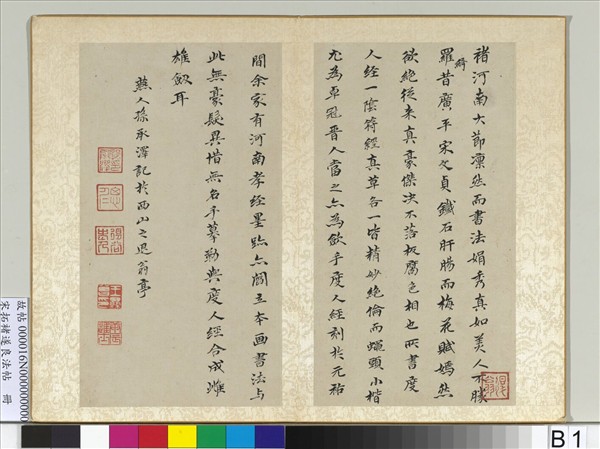 褚河南大節凜然而書法娟秀真如美人不勝
羅綺昔廣平宋文貞鐵石肝腸而梅花賦嫣然
欲絕從來真豪傑決不落板腐色相也所書度
人經一陰符經真草各一皆精妙絕倫而蠅頭小楷
尤為卓冠晉人當之亦為斂手度人經刻於元祐
間余家有河南孝經墨跡亦閻立本画書法与
此無豪髮異惜無名手摹勒與度人經合成雌
雄劍耳
燕人孫承澤記於西山之退翁亭
退翁
故帖 000016N000000000
宋拓褚遂良法帖 冊
B 1